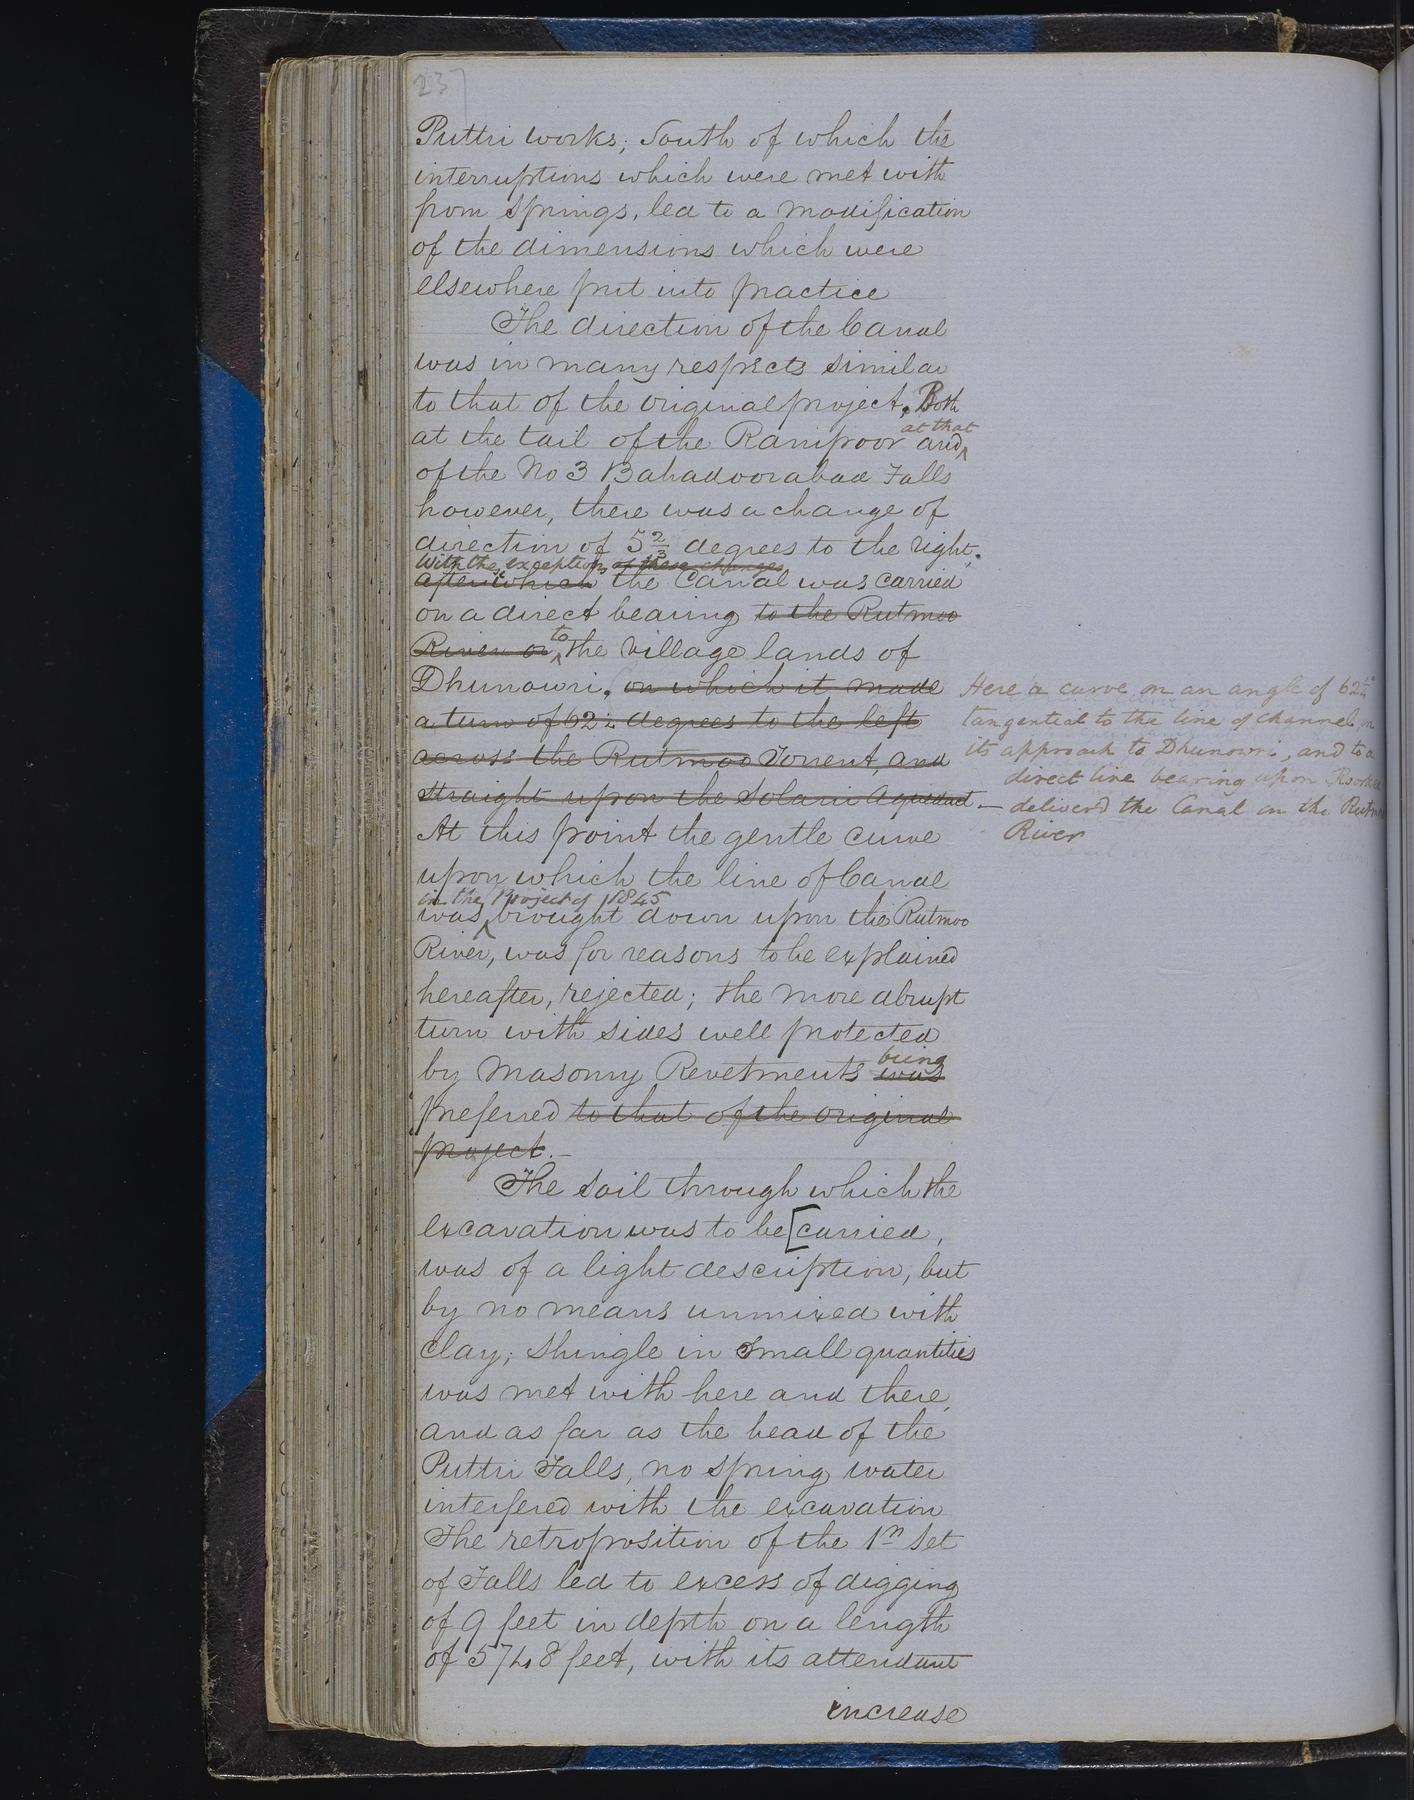 237
Puttri works; South of which the
interruptions which were met with
from springs, led to a modification
of the dimensions which were
elsewhere put into practice
The direction of the Canal
was in many respects similar
to that of the original project. Both
at that
at the tail of the Ranipoor and
of the No 3 Bahadoorabad Falls
however, there was a change of
direction of 5 2/3 degrees to the right.
With the exception of these changes
after which the Canal was carried
on a direct bearing to the Rutmoo
River or to the village lands of
Dhunowri, on which it made
a turn of 62 1/2 degrees to the left
across the Rutmoo Torrent, and
straight upon the Solani Aqueduct —
Here a curve on an angle of 62 1/2°
tangential to the line of channel in
its approach to Dhunowri, and to a
direct line bearing upon Roorkee
deliverd the Canal on the Rutmoo
River
At this point the gentle curve
upon which the line of Canal
in the Project of 1845
was brought down upon the Rutmoo
River, was for reasons to be explained
hereafter, rejected; the more abrupt
turn with sides well protected
being
by Masonry Revetments was
preferred to that of the original
project. —
The soil through which the
excavation was to be [carried,
was of a light description, but
by no means unmixed with
clay; shingle in small quantities
was met with here and there,
and as far as the head of the
Puttri Falls, no spring water
interfered with the excavation
The retroposition of the 1st Set
of Falls led to excess of digging
of 9 feet in depth on a length
of 5748 feet, with its attendant
increase